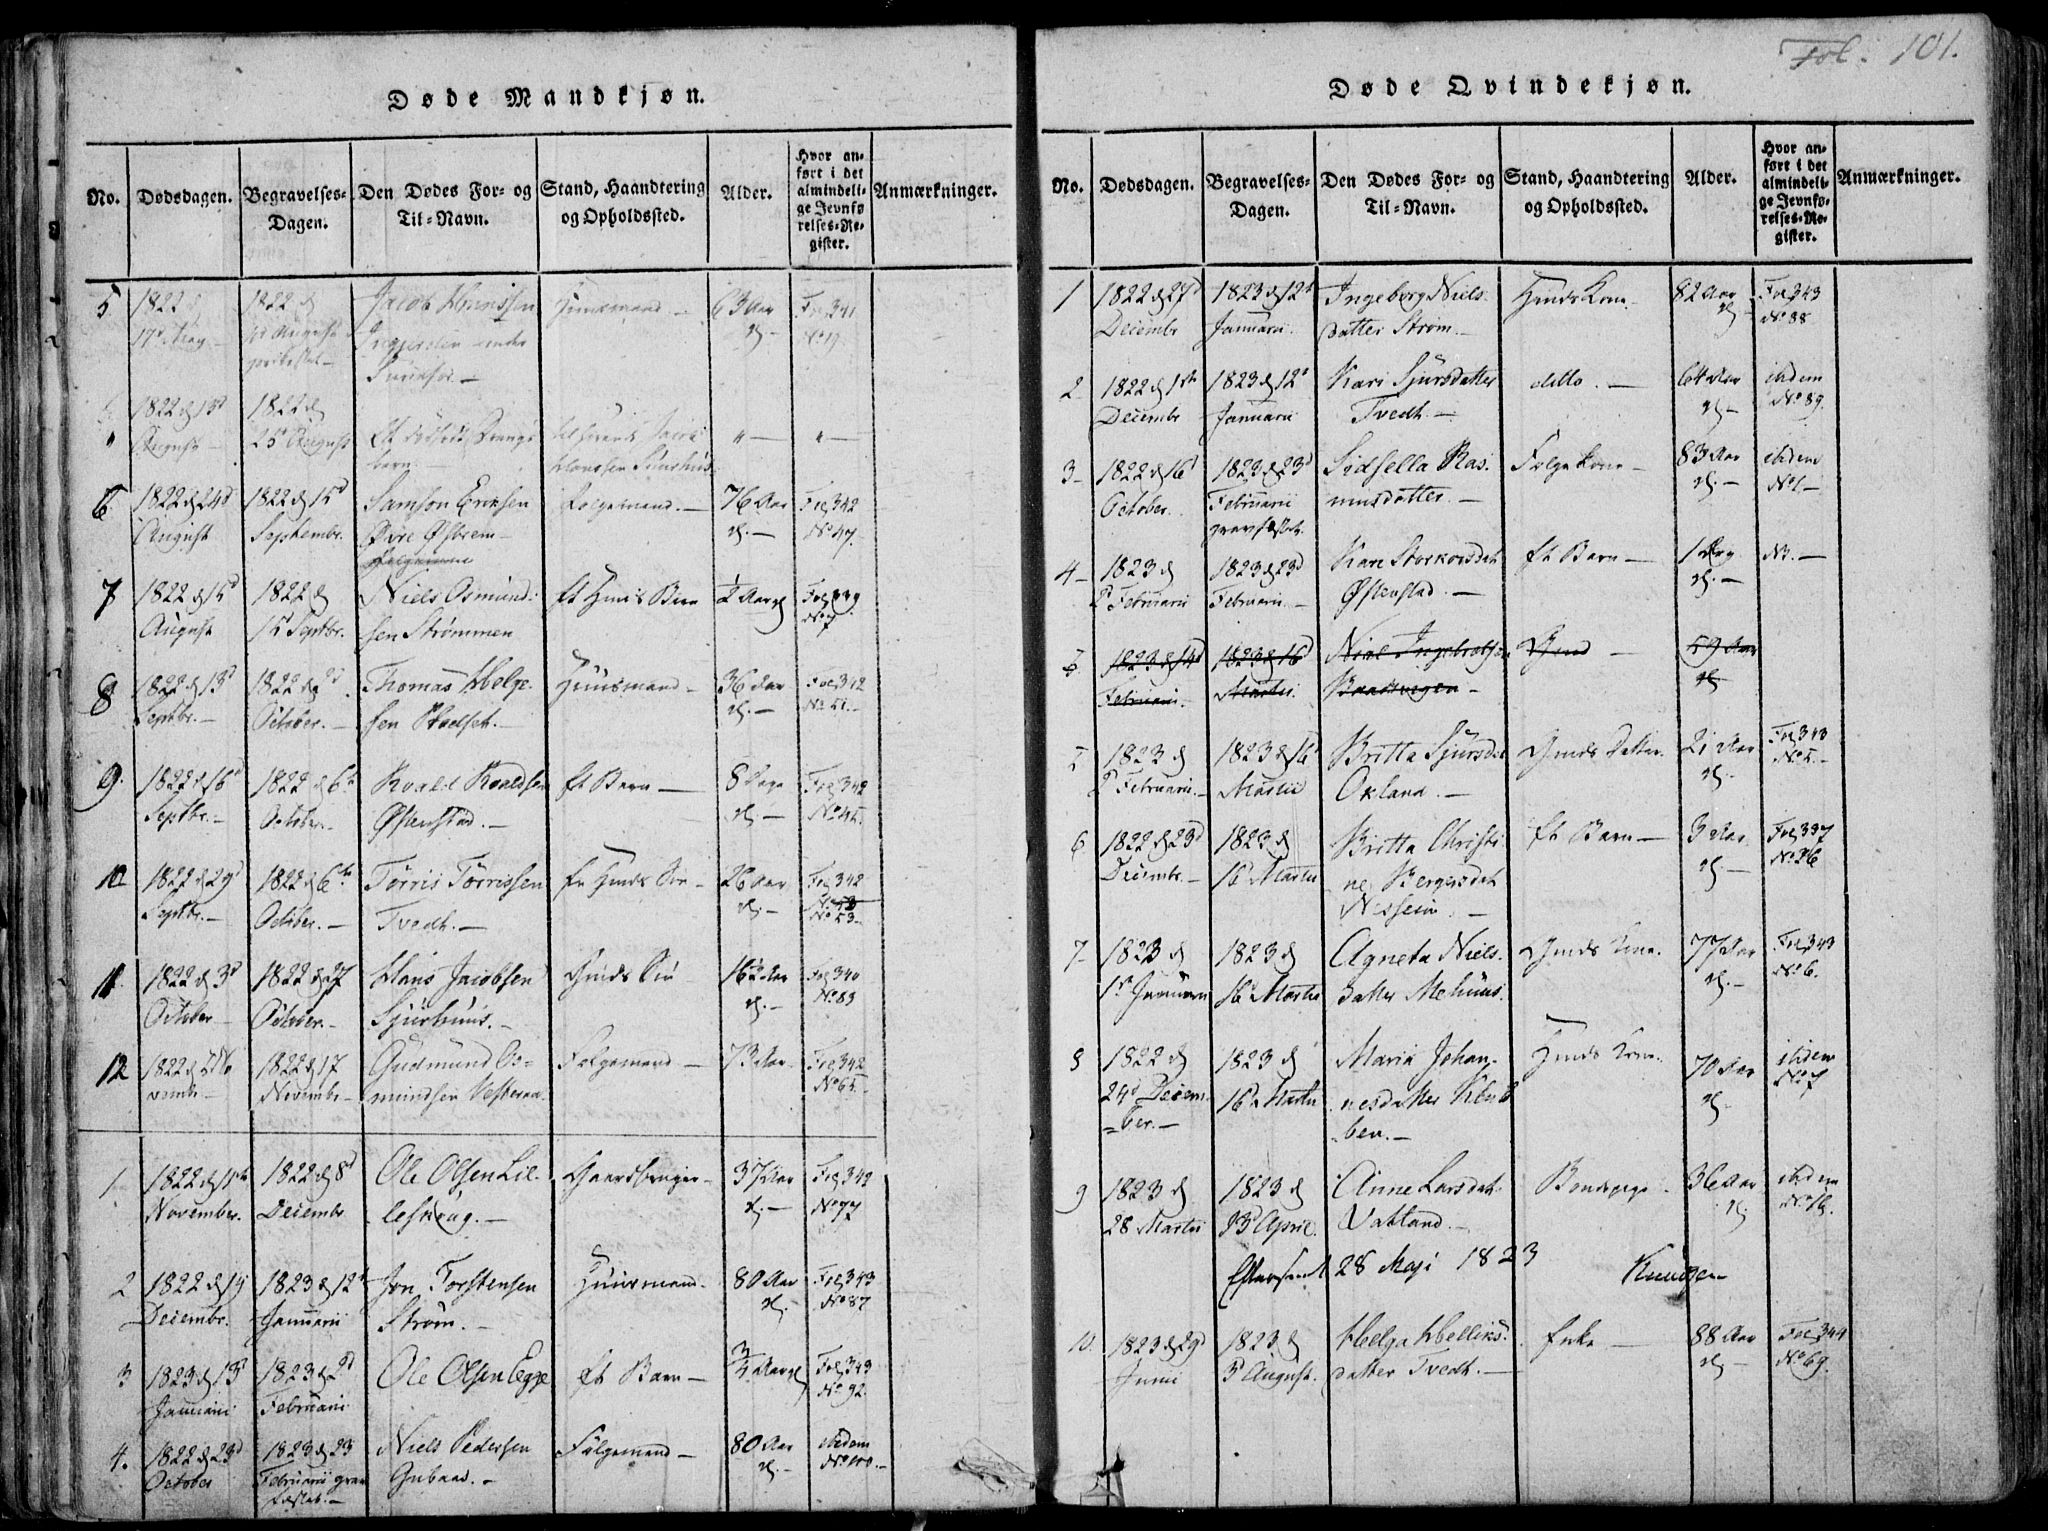 Døde Mandkjøn.
No.
Dødsdagen.
Begravelses-
Dagen.
Den Dødes For- og
Til-Navn.
Stand, Haandtering
og Opholdssted.
Alder.
Hvor an-
ført i det
almindeli-
ge Jevnfø-
relses-Re-
gister.
Anmærkninger.
5
1822 d
17 May
1822 d
August
Jacob
under
Huusmand
63 Aar
Fol 341
No 19
1822 d 13d
August
1822 d
25d August
Et dødfød Drenge
barn
Jacob
6
1822 d 24d
August
1822 d 15d
Septembr.
Samson Eriksen
Øvre Østrem
Folgemand.
76 Aar
Fol 342
No 47.
7
1822 d 15d
August
1822 d
15 Septbr.
Niels Osmund-
sen Strømmen
et Barn
1/2 Aar
No 7
8
1822 d 13d
Septbr.
1822 d 2d
October.
Thomas Helge-
sen
Huusmand
36 Aar
Fol 342
No 51.
9.
1822 d 16d
Septbr.
1822 d 6te
October.
Roald Roaldsen
Østenstad.
et Barn
8 Dage
Fol 342
No 45.
10
1822 d 29d
Septbr.
1822 d 6te
October.
Torris Torrissen
Tvedt.
26 Aar
Fol 342
No 53.
11.
1822 d 3d
October
1822 d 27
October.
Hans Jacobsen
Sjurhuus.
Gmds Søn
16 1/2 Aar
Fol 340
No 83
12
1822 d No-
vembr
1822 d 17
Novembr
Gudmund Os-
mundsen
Folgemand
73 Aar
Fol 342
No 65
1.
1822 d
November.
1822 d 8d
Decembr
Ole Olsen Lil-
leskoug.
Gaardbruger
37 Aar
Fol 342
No 77
2
1822 d 19
Decembr.
1823 d 12te
Januarii
Jon Torstensen
Strøm.
Huusmand.
80 Aar
Fol 343
No 87
3
1823 d 13d
Januarii
1823 d 2d
Februarii
Ole Olsen Egge
et Barn
3/4 Aar
Fol 343
No 92.
4.
1822 d 23d
October
1823 d 23
Februarii grav
fæstet.
Niels Pedersen
Gubaas.
Folgemand
80 Aar
ibidem
No 100.
Fol. 101.
Døde Qvindekjøn.
No.
Dødsdagen.
Begravelses-
Dagen.
Den Dødes For- og
Til-Navn.
Stand, Haandtering
og Opholdssted.
Alder.
Hvor an-
ført i det
almindeli-
ge Jevnfø-
relses-Re-
gister.
Anmærkninger.
1
1822 d 27d
Decembr
1823 d 12te
Januarii.
Ingeborg Niels-
datter Strøm.
Hmds Kone.
82 Aar
Fol 343
No 88.
2
1822 d
Decembr
1823 d 12te
Januarii
Kari Sjursdatter
Tvedt.
ditto.
64 Aar
ibidem
No 89.
3
1822 d 16d
October.
1823 d 23d
Februarii
gravfæstet.
Sidsella Ras-
musdatter.
Folgekone
83 Aar
ibidem
No 1
4
1823 d
2d Februarii
1823 d 23d
Februarii.
Kari Storkorsdat
Østenstad.
et Barn
1 Dag
5.
1823 d 14d
Februarii.
1823 d 16d
Martii.
59 Aar
5
1823 d
2d Februarii.
1823 d 16d
Martii
Britta Sjursdat
Okland.
Gmds Datter.
21 Aar
Fol 343
No 5.
6
1822 d 23d
Decembr.
1823 d
16 Martii
Britta Christi-
ne Bergersdat
et Barn
3 Aar
Fol 337
No 36
7
1823 d
1te Januarii
1823 d
16d Martii
Agneta Niels-
datter Mehuus.
Gmds Kone.
77 Aar
Fol 343
No 6.
8
1822 d
24d Decem-
ber.
1823 d
16d Martii
Maria Johan-
nesdatter
Hmds Kone.
70 Aar
ibidem
No 7
9
1823 d
28 Martii
1823 d
13d April.
Anne Larsdat.
Vatland.
36 Aar
ibidem
No 12.
Efterseet 28 Maji 1823
10.
1823 d 29d
Junii
1823 d
3d August.
Helga Helliks-
datter Tvedt.
Enke
88 Aar
Fol 344
No 69.